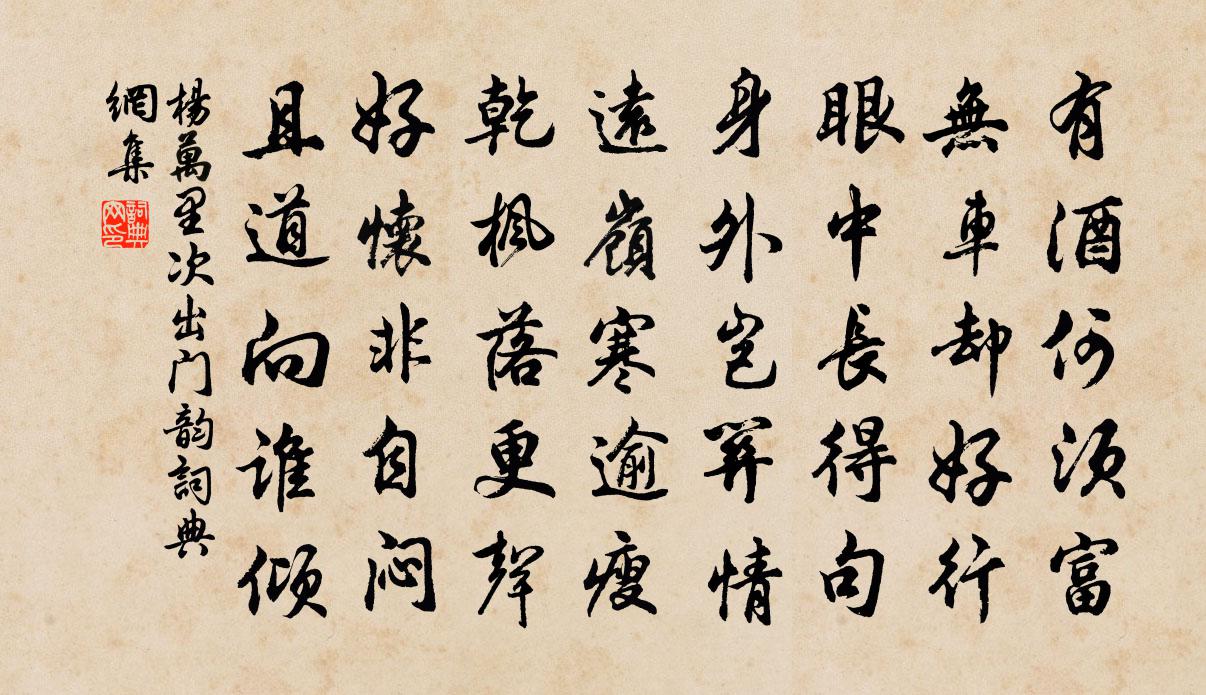 有酒何須富
無車却好行
眼中長得句
身外豈關情
遠嶺寒逾瘦
乾楓落更聲
好懷非自悶
且道向誰傾
楊萬里次出門韵詞典
網集
詞典
网印